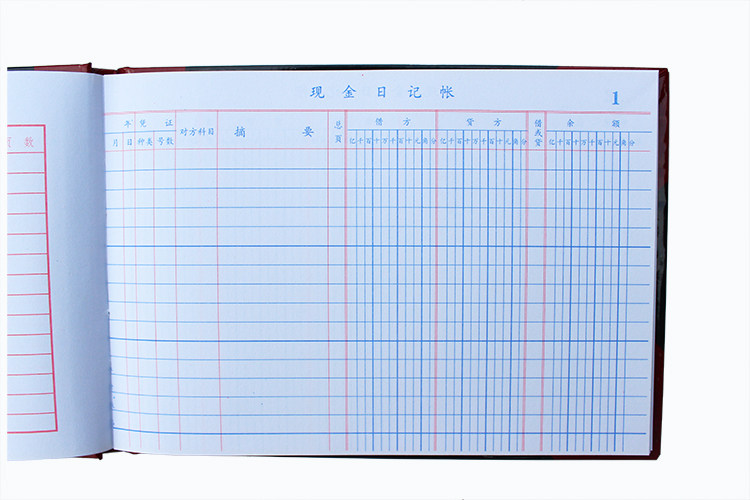 现金日记帐
1
页数
年 凭证 对方科目 摘要 总页 借方 贷方 借或贷 余额
月 日 种类 号数 亿千百十万千百十元角分 亿千百十万千百十元角分 亿千百十万千百十元角分